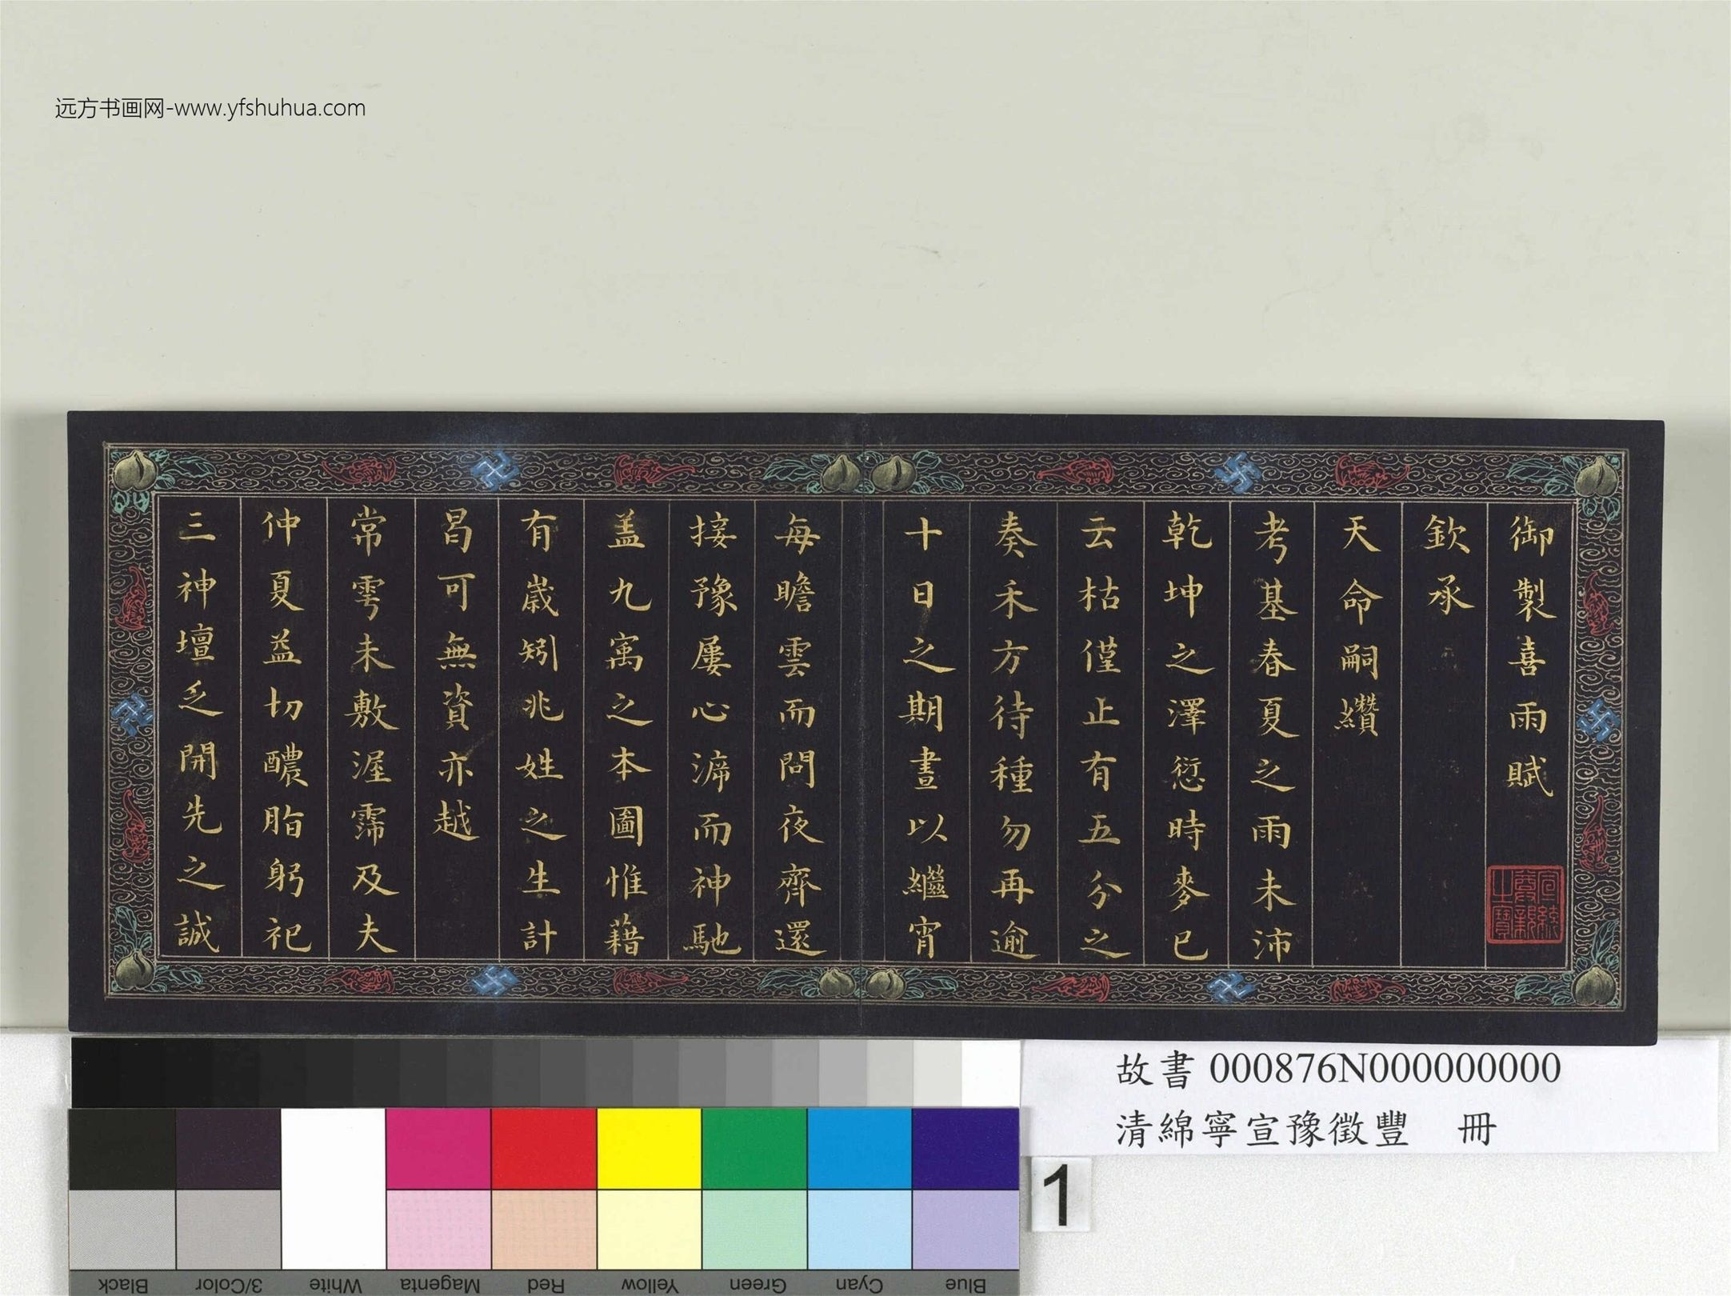 远方书画网-www.yfshuhua.com
御製喜雨賦
欽承
天命嗣纘
考基春夏之雨未沛
乾坤之澤愆時麥已
云枯僅止有五分之
奏禾方待種勿再逾
十日之期晝以繼宵
每瞻雲而問夜齊還
接豫屢心渧而神馳
盖九寓之本圖惟藉
有嵗矧兆姓之生計
曷可無資亦越
常雩未敷渥霈及夫
仲夏益切醲脂躬祀
三神壇乏開先之誠
宣統尊親之寶
故書 000876N000000000
清綿寧宣豫徵豐 冊
1
Black
3/Color
White
Magenta
Red
Yellow
Green
Cyan
Blue